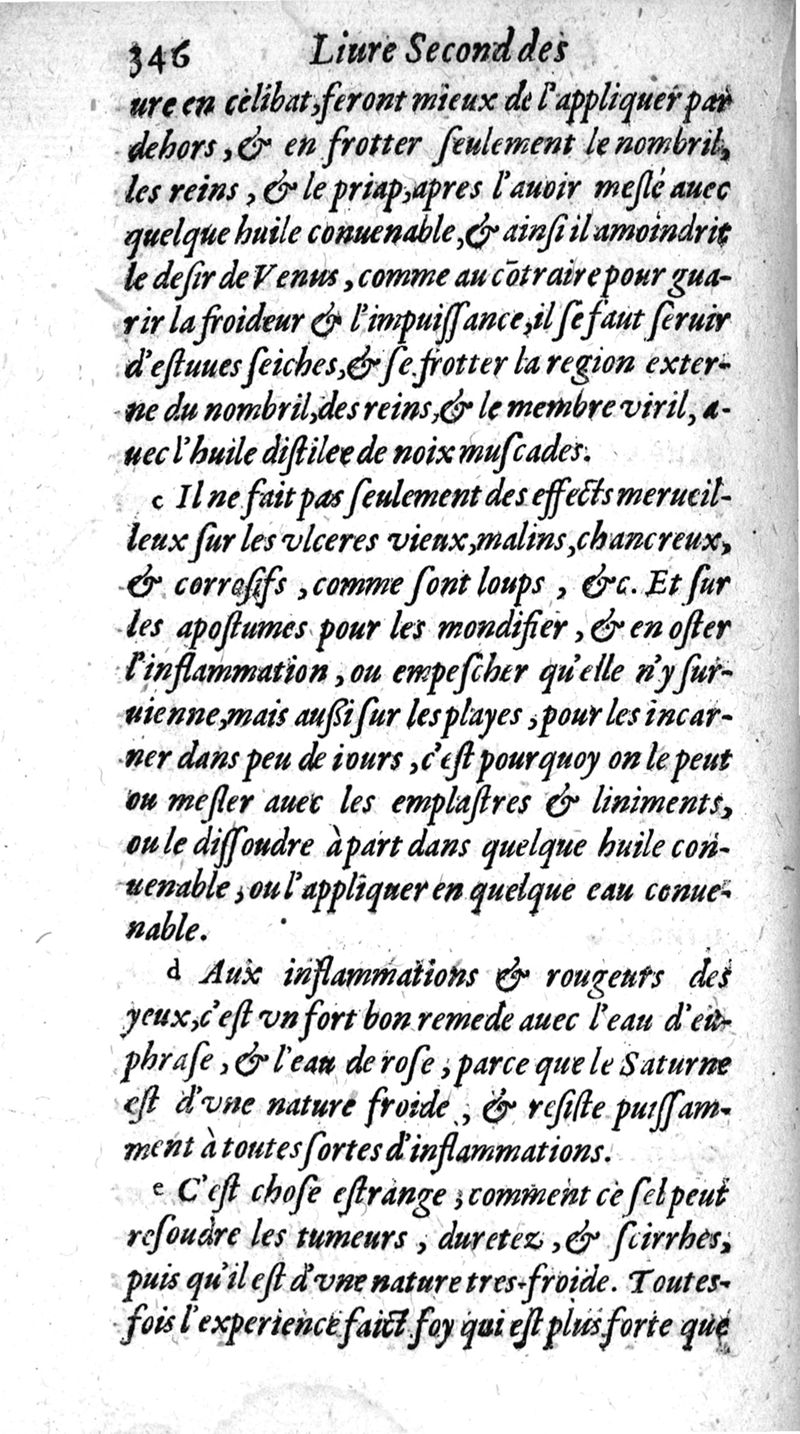 346 Liure Second des
ure en celibat, feront mieux de l'appliquer par
dehors, & en frotter ſeulement le nombril,
les reins, & le priap, apres l'auoir meſlé auec
quelque huile conuenable, & ainſi il amoindrit
le deſir de Venus, comme au cōtraire pour gua-
rir la froideur & l'impuiſſance, il ſe faut ſeruir
d'eſtuues ſeiches, & ſe frotter la region exter-
ne du nombril, des reins, & le membre viril, a-
uec l'huile diſtilee de noix muſcades.
c Il ne fait pas ſeulement des effects merueil-
leux ſur les vlceres vieux, malins, chancreux,
& corroſifs, comme ſont loups, &c. Et ſur
les apoſtumes pour les mondifier, & en oſter
l'inflammation, ou empeſcher qu'elle n'y ſur-
uienne, mais außi ſur les playes, pour les incar-
ner dans peu de iours, c'eſt pourquoy on le peut
ou meſler auec les emplaſtres & liniments,
ou le diſſoudre à part dans quelque huile con-
uenable, ou l'appliquer en quelque eau conue-
nable.
d Aux inflammations & rougeurs des
yeux, c'eſt vn fort bon remede auec l'eau d'eu-
phraſe, & l'eau de roſe, parce que le Saturne
eſt d'vne nature froide, & reſiſte puiſſam-
ment à toutes ſortes d'inflammations.
e C'eſt choſe eſtrange, comment ce ſel peut
reſoudre les tumeurs, duretez, & ſcirrhes,
puis qu'il eſt d'vne nature tres-froide. Toutes-
fois l'experience faict foy qui eſt plus forte que